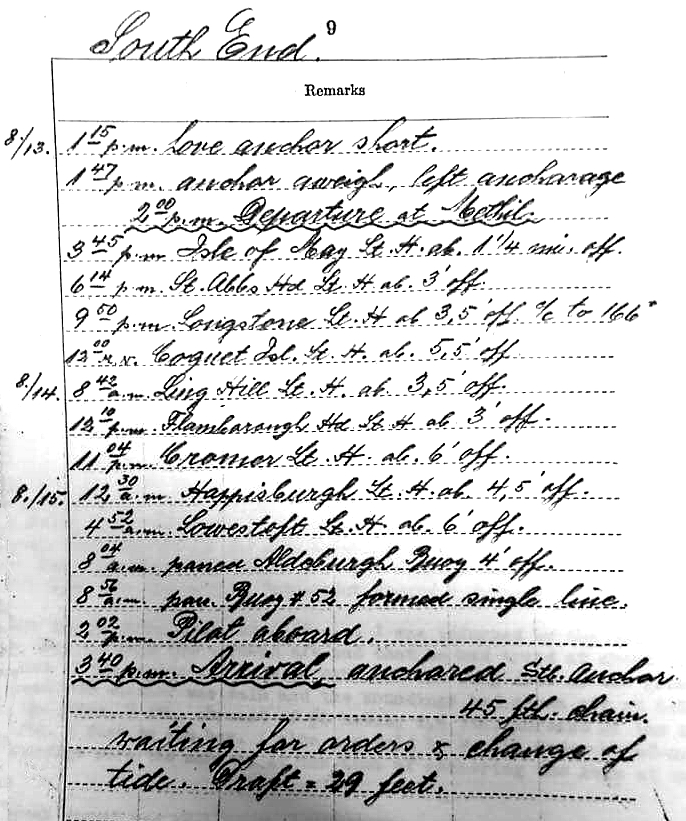 9
South End.
Remarks
8/13. 1 15 p.m. hove anchor short.
1 47 p.m. anchor aweigh, left ancharage
2 00 p.m. Departure at Methil.
3 45 p.m. Isle of May Lt. H. ab. 1 1/4 mi. off.
6 14 p.m. St. Abbs Hd Lt. H ab. 3' off.
9 50 p.m. Longstone Lt. H ab 3,5' off % to 166°
12 00 Coquet Isl. Lt. H. ab. 5,5' off
8/14. 8 42 a.m. Ling Hill Lt. H. ab. 3,5' off.
12 10 p.m. Flamborough Hd Lt H ab 3' off.
11 04 p.m. Cromer Lt. H. ab. 6' off.
8./15. 12 30 a.m Happisburgh Lt. H. ab. 4,5' off.
4 52 a.m. Lowestoft Lt. H. ab. 6' off.
8 04 a.m. passed Aldeburgh Buoy 4' off.
8 56 a.m. pass. Buoy # 52 formed single line.
2 02 p.m. Pilot aboard.
3 40 p.m. Arrival, anchored Stb. Anchor
45 fth. chain.
waiting for orders & change of
tide. Draft = 29 feet.